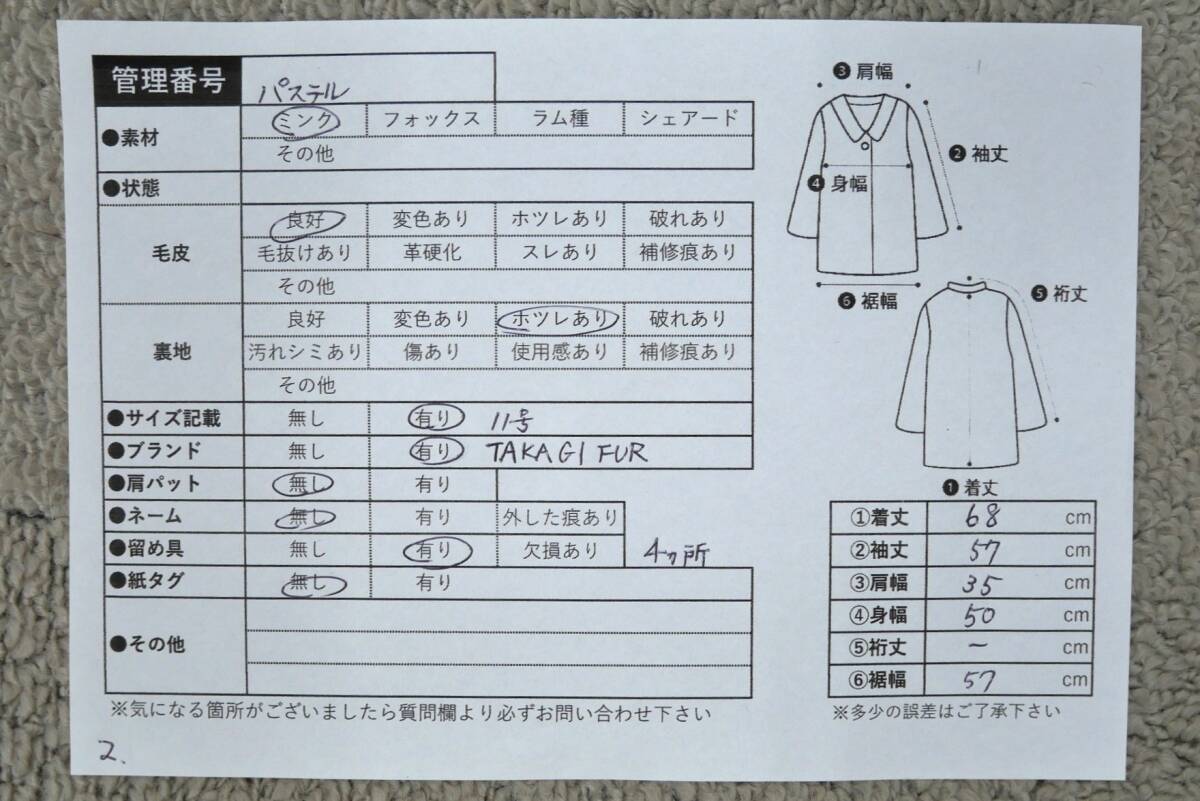 管理番号 パステル
●素材 ミンク フォックス ラム種 シェアード
その他
●状態
毛皮 良好 変色あり ホツレあり 破れあり
毛抜けあり 革硬化 スレあり 補修痕あり
その他
裏地 良好 変色あり ホツレあり 破れあり
汚れシミあり 傷あり 使用感あり 補修痕あり
その他
●サイズ記載 無し 有り 11号
●ブランド 無し 有り TAKAGI FUR
●肩パット 無し 有り
●ネーム 無し 有り 外した痕あり
●留め具 無し 有り 欠損あり 4ヶ所
●紙タグ 無し 有り
●その他
※気になる箇所がございましたら質問欄より必ずお問い合わせ下さい
2.
❸肩幅
❷袖丈
❹身幅
❻裾幅
❺裄丈
❶着丈
①着丈 68 cm
②袖丈 57 cm
③肩幅 35 cm
④身幅 50 cm
⑤裄丈 ー cm
⑥裾幅 57 cm
※多少の誤差はご了承下さい